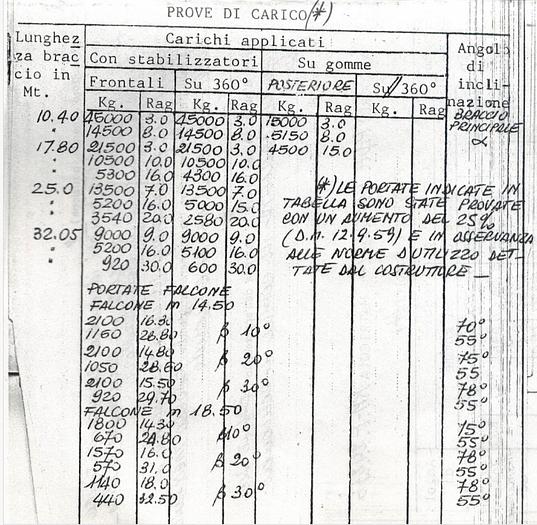 PROVE DI CARICO (*)
Lunghez Carichi applicati Angolo
za brac Con stabilizzatori Su gomme di
cio in Frontali Su 360° POSTERIORE Su 360° incli-
Mt. Kg. Rag Kg. Rag Kg. Rag Kg. Rag nazione
10.40 45000 3.0 45000 3.0 15000 3.0 BRACCIO
" 14500 8.0 14500 8.0 5150 8.0 PRINCIPALE
17.80 21500 3.0 21500 3.0 4500 15.0 α
" 10500 10.0 10500 10.0
" 5300 16.0 4300 16.0
25.0 13500 7.0 13500 7.0 (*) LE PORTATE INDICATE IN
" 5200 16.0 5000 15.0 TABELLA SONO STATE PROVATE
" 3540 20.0 2580 20.0 CON UN AUMENTO DEL 25%
32.05 9000 9.0 9000 9.0 (D.M. 12.9.59) E IN OSSERVANZA
" 5200 16.0 5100 16.0 ALLE NORME D'UTILIZZO DET-
" 920 30.0 600 30.0 TATE DAL COSTRUTTORE —
PORTATE FALCONE
FALCONE m 14.50
2100 16.30 β 10° 70°
1150 28.80 55°
2100 14.80 β 20° 75°
1050 28.60 55
2100 15.50 β 30° 78°
920 29.70 55°
FALCONE m 18.50
1800 14.30 β 10° 75°
670 29.80 55°
1570 16.0 β 20° 78°
570 31.0 55°
1140 18.0 β 30° 78°
440 32.50 55°